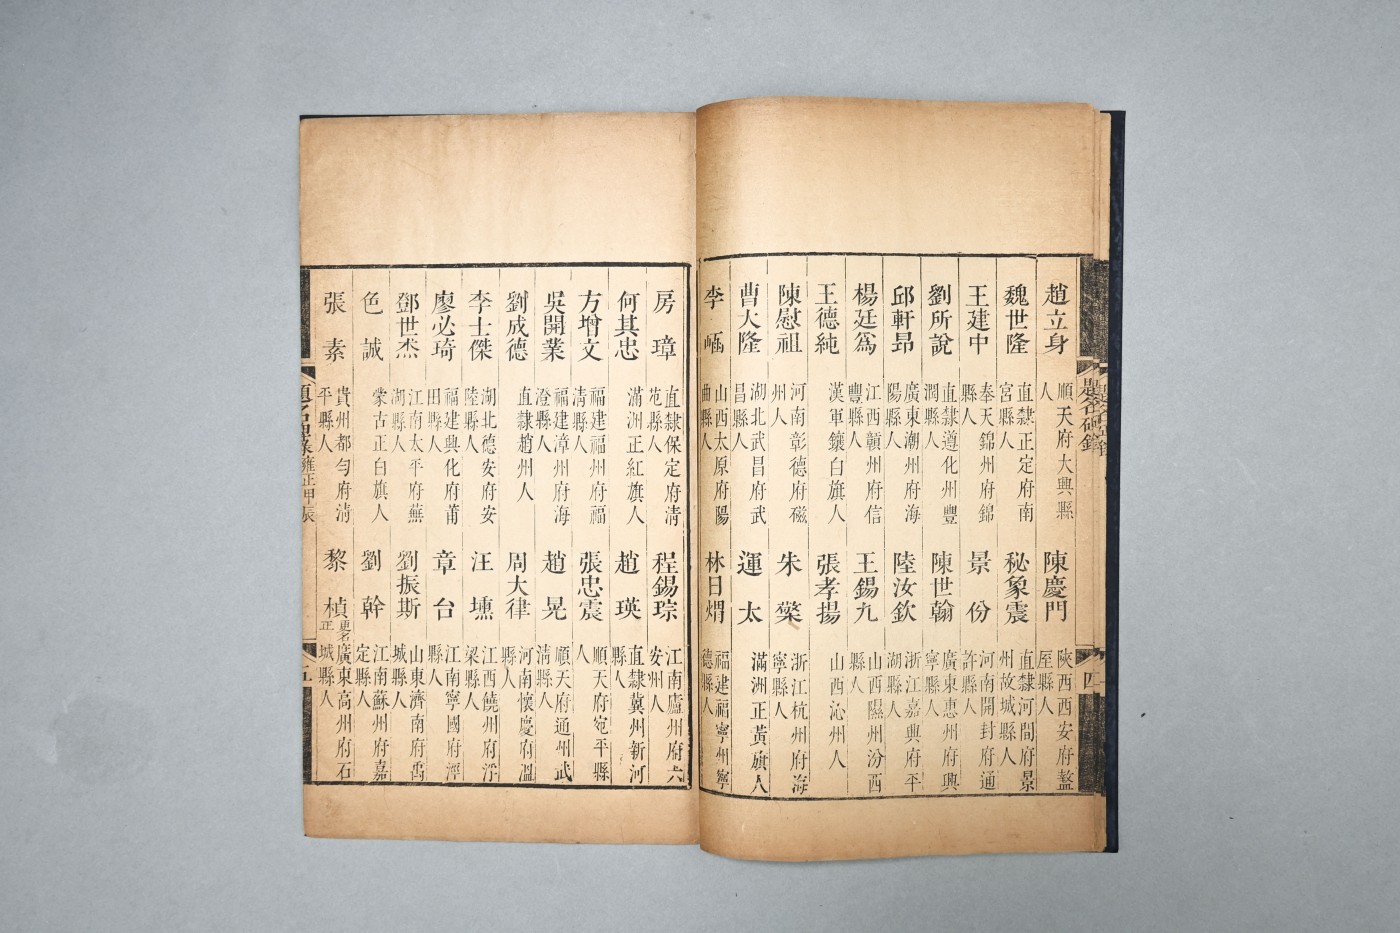 趙立身 順天府大興縣人 陳慶門 陝西西安府盩厔縣人
魏世隆 直隸正定府南宮縣人 秘象震 直隸河間府景州故城縣人
王建中 奉天錦州府錦縣人 景份 河南開封府通許縣人
劉所說 直隸遵化州豐潤縣人 陳世翰 廣東惠州府興寧縣人
邱軒昂 廣東潮州府海陽縣人 陸汝欽 浙江嘉興府平湖縣人
楊廷爲 江西贛州府信豐縣人 王錫九 山西隰州汾西縣人
王德純 漢軍鑲白旗人 張孝揚 山西沁州人
陳慰祖 河南彰德府磁州人 朱 浙江杭州府海寧縣人
曹大隆 湖北武昌府武昌縣人 運太 滿洲正黃旗人
李 山西太原府陽曲縣人 林日焆 福建福寧州寧德縣人
四
房璋 直隸保定府清苑縣人 程錫琮 江南廬州府六安州人
何其忠 滿洲正紅旗人 趙瑛 直隸冀州新河縣人
方增文 福建福州府福清縣人 張忠震 順天府宛平縣人
吳開業 福建漳州府海澄縣人 趙晃 順天府通州武清縣人
劉成德 直隸趙州人 周大律 河南懷慶府溫縣人
李士傑 湖北德安府安陸縣人 汪壎 江西饒州府浮梁縣人
廖必琦 福建興化府莆田縣人 章台 江南寧國府涇縣人
鄧世杰 江南太平府蕪湖縣人 劉振斯 山東濟南府禹城縣人
色誠 蒙古正白旗人 劉幹 江南蘇州府嘉定縣人
張素 貴州都勻府清平縣人 黎楨 更名正 廣東高州府石城縣人
題名碑錄 雍正甲辰 五
題名碑錄